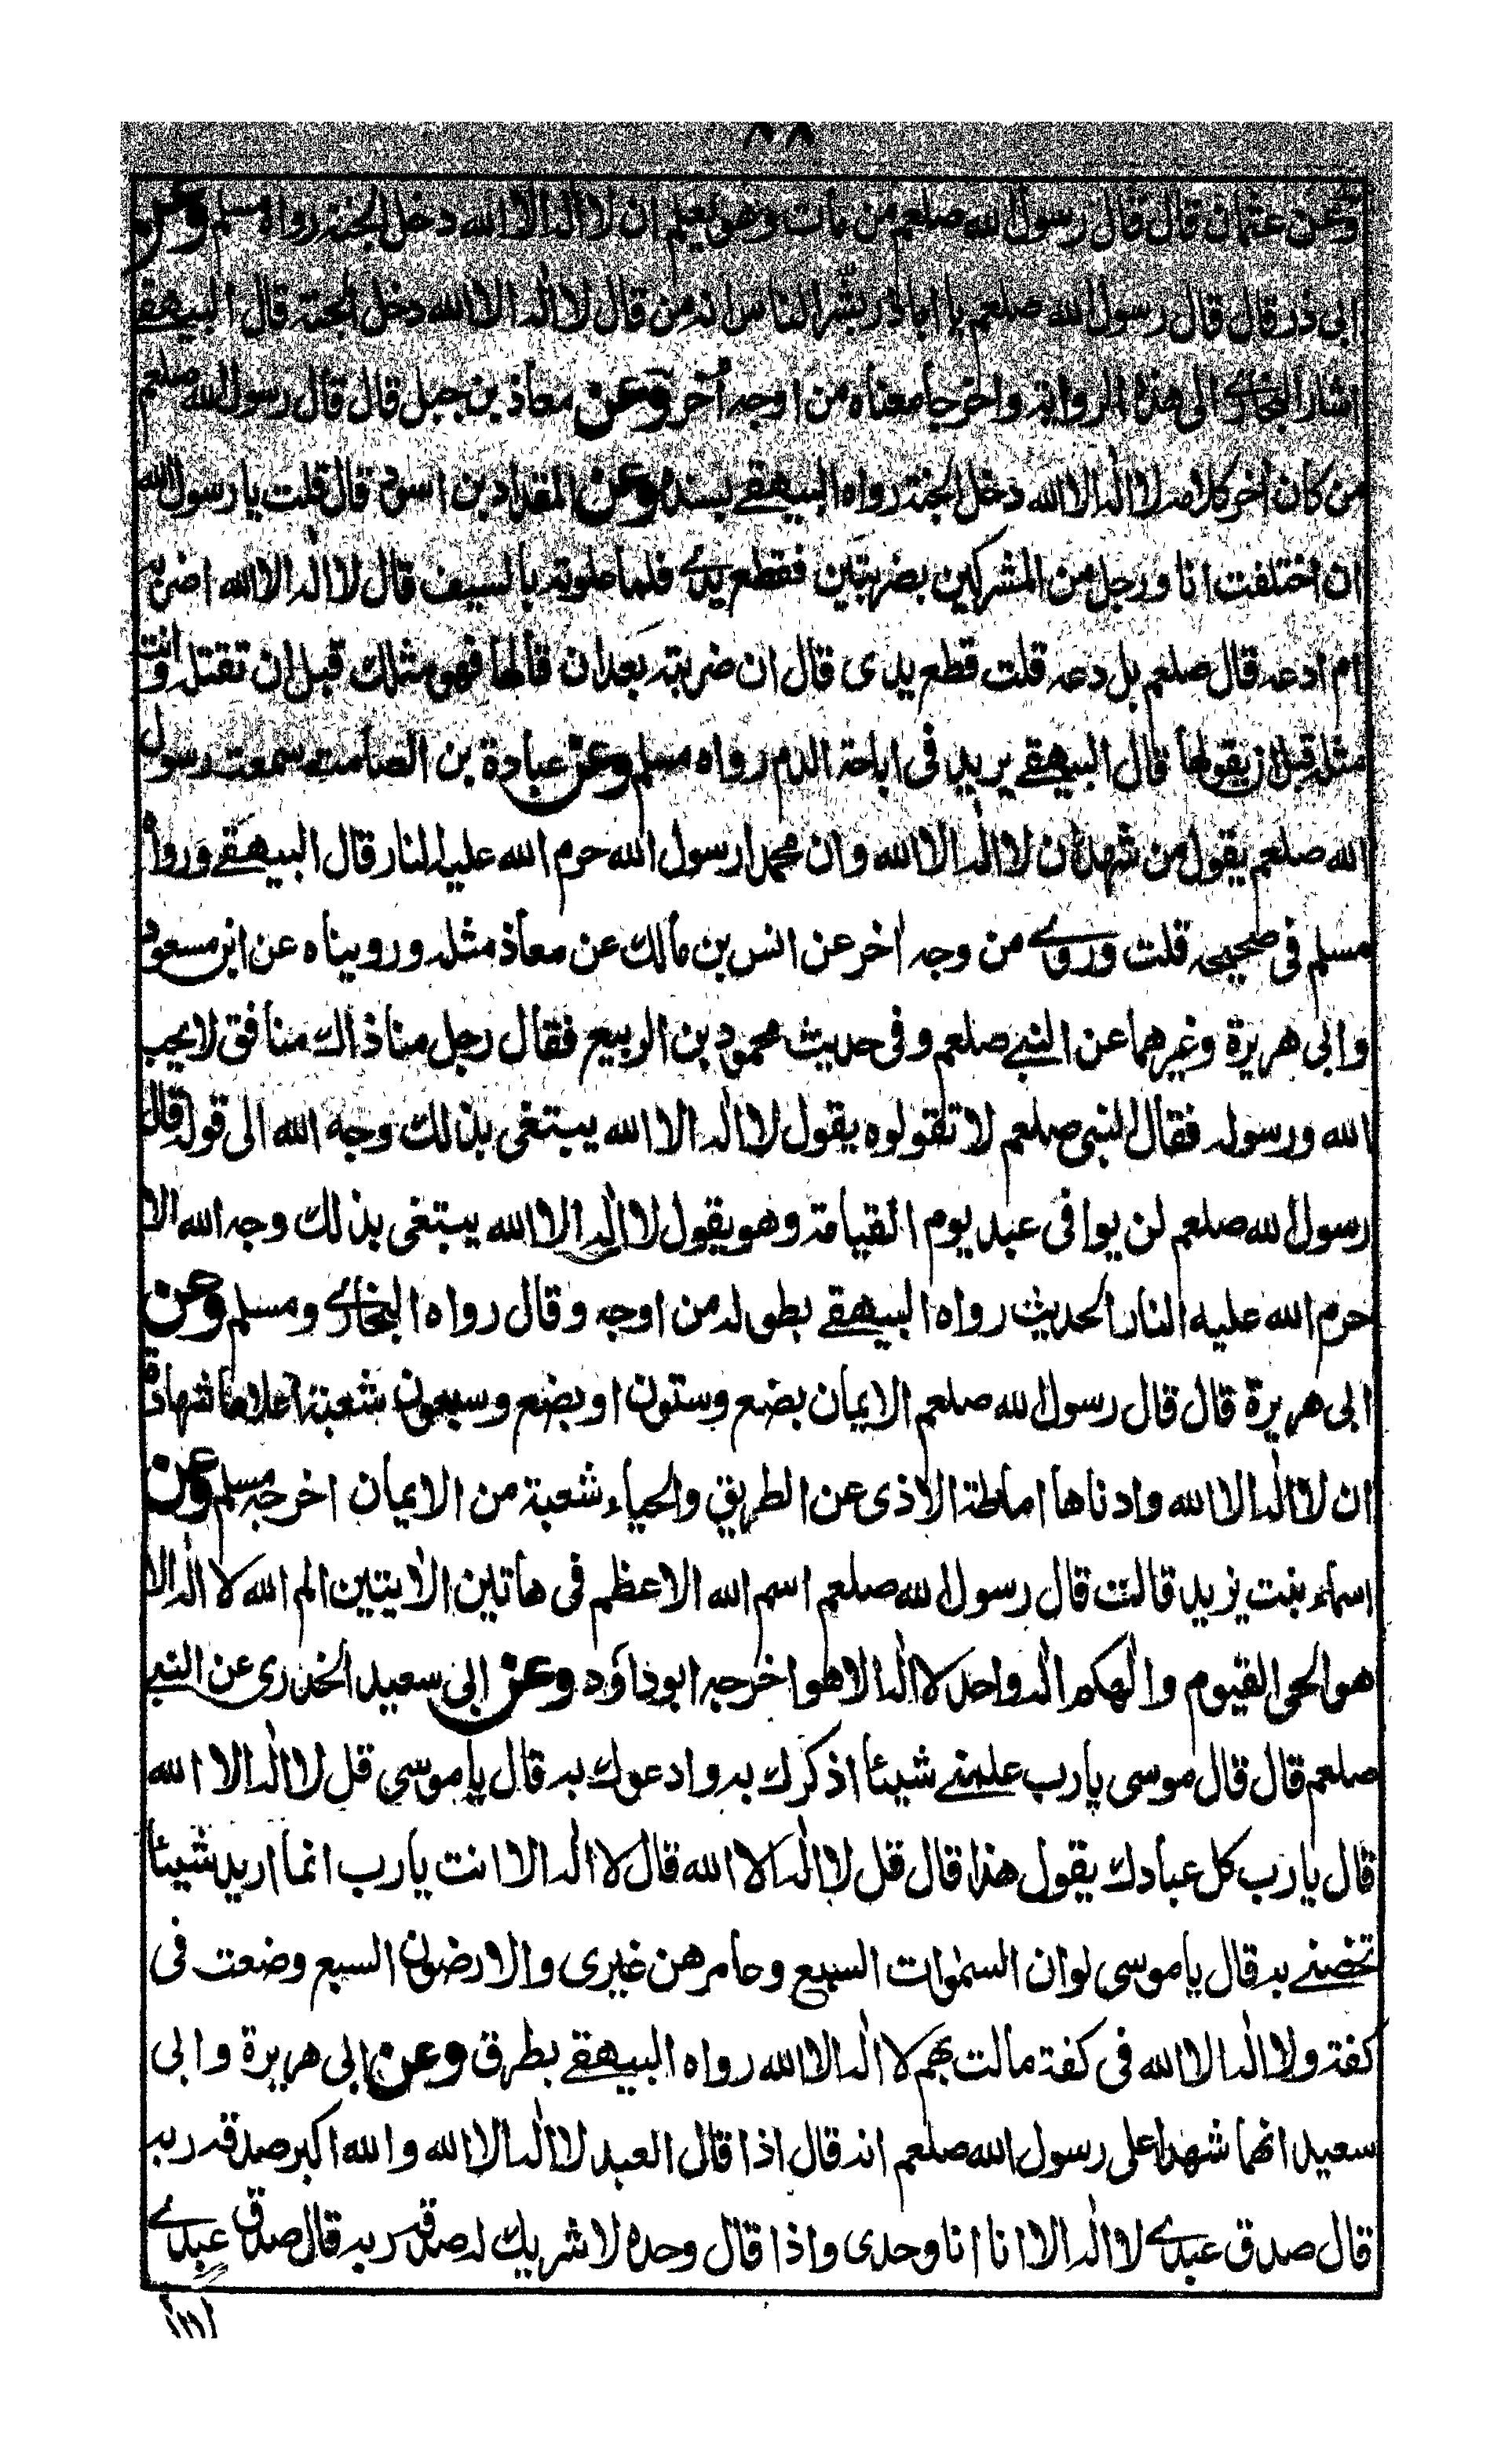 ٨٨
وعن عثمان قال قال رسول الله صلعم من مات وهو يعلم ان لا اله الا الله دخل الجنة رواه مسلم وعن
ابى ذر قال قال رسول الله صلعم يا اباذر بشر الناس انه من قال لا اله الا الله دخل الجنة قال البيهقے
اشار البخارے الى هذا الرواية واخرجا معناه من اوجه آخر وعن معاذ بن جبل قال قال رسول الله صلعم
من كان اخر كلامه لا اله الا الله دخل الجنة رواه البيهقے بسنده وعن المقداد بن اسود قال قلت يا رسول الله
ان اختلفت انا ورجل من المشركين بضربتين فقطع يدے فلما علوته بالسيف قال لا اله الا الله اضربه
ام ادعه قال صلعم بل دعه قلت قطع يدى قال ان ضربته بعد ان قالها فهو مثلك قبل ان تقتله وانت
مثله قبل ان يقولها قال البيهقے يريد فى اباحة الدم رواه مسلم وعن عبادة بن الصامت سمعت رسول
الله صلعم يقول من شهد ان لا اله الا الله وان محمدا رسول الله حرم الله عليه النار قال البيهقے ورواه
مسلم فى صحيحه قلت وروے من وجه اخر عن انس بن مالك عن معاذ مثله ورويناه عن ابن مسعود
وابى هريرة وغيرهما عن النبے صلعم وفى حديث محمود بن الربيع فقال رجل منا ذاك منافق لا يحب
الله ورسوله فقال النبى صلعم لا تقولوه يقول لا اله الا الله يبتغى بذلك وجه الله الى قوله قال
رسول الله صلعم لن يوافى عبد يوم القيامة وهو يقول لا اله الا الله يبتغى بذلك وجه الله الا
حرم الله عليه النار الحديث رواه البيهقے بطوله من اوجه وقال رواه البخارے ومسلم وعن
ابى هريرة قال قال رسول الله صلعم الايمان بضع وستون او بضع وسبعون شعبة اعلاها شهادة
ان لا اله الا الله وادناها اماطة الاذى عن الطريق والحياء شعبة من الايمان اخرجه مسلم وعن
اسماء بنت يزيد قالت قال رسول الله صلعم اسم الله الاعظم فى هاتين الايتين الم الله لا اله الا
هو الحى القيوم والهكم اله واحد لا اله الا هو اخرجه ابوداؤد وعن ابى سعيد الخدرى عن النبے
صلعم قال قال موسى يا رب علمنے شيئا اذكرك به وادعوك به قال يا موسى قل لا اله الا الله
قال يا رب كل عبادك يقول هذا قال قل لا اله الا الله قال لا اله الا انت يا رب انما اريد شيئا
تخصنے به قال يا موسى لو ان السموات السبع وعامرهن غيرى والارضون السبع وضعت فى
كفة ولا اله الا الله فى كفة مالت بهم لا اله الا الله رواه البيهقے بطرق وعن ابى هريرة وابى
سعيد انهما شهدا على رسول الله صلعم انه قال اذا قال العبد لا اله الا الله والله اكبر صدقه ربه
قال صدق عبدے لا اله الا انا انا وحدى واذا قال وحده لا شريك له صدقه ربه قال صدق عبدے